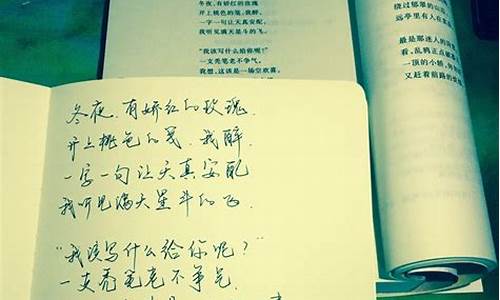 冬夜,有娇红的玫瑰
开上桃色的笺,我醉,
一字一句让天真安配
我听见满天星斗的飞。
"我该写什么给你呢?"
一支秃笔老不争气,
我想,这该是一场空欢喜。
绕过郁翠的山
远亭里有人在
最是那迷人的
看,乱鸦正
一顶的小轿,
又赶着前路的
冬夜,有娇红的玫瑰
开上桃色的笺,我醉,
一字一句让天真安配
我听见满天星斗的飞
"我该写什么给你呢?"
一支秃笔老不争气,